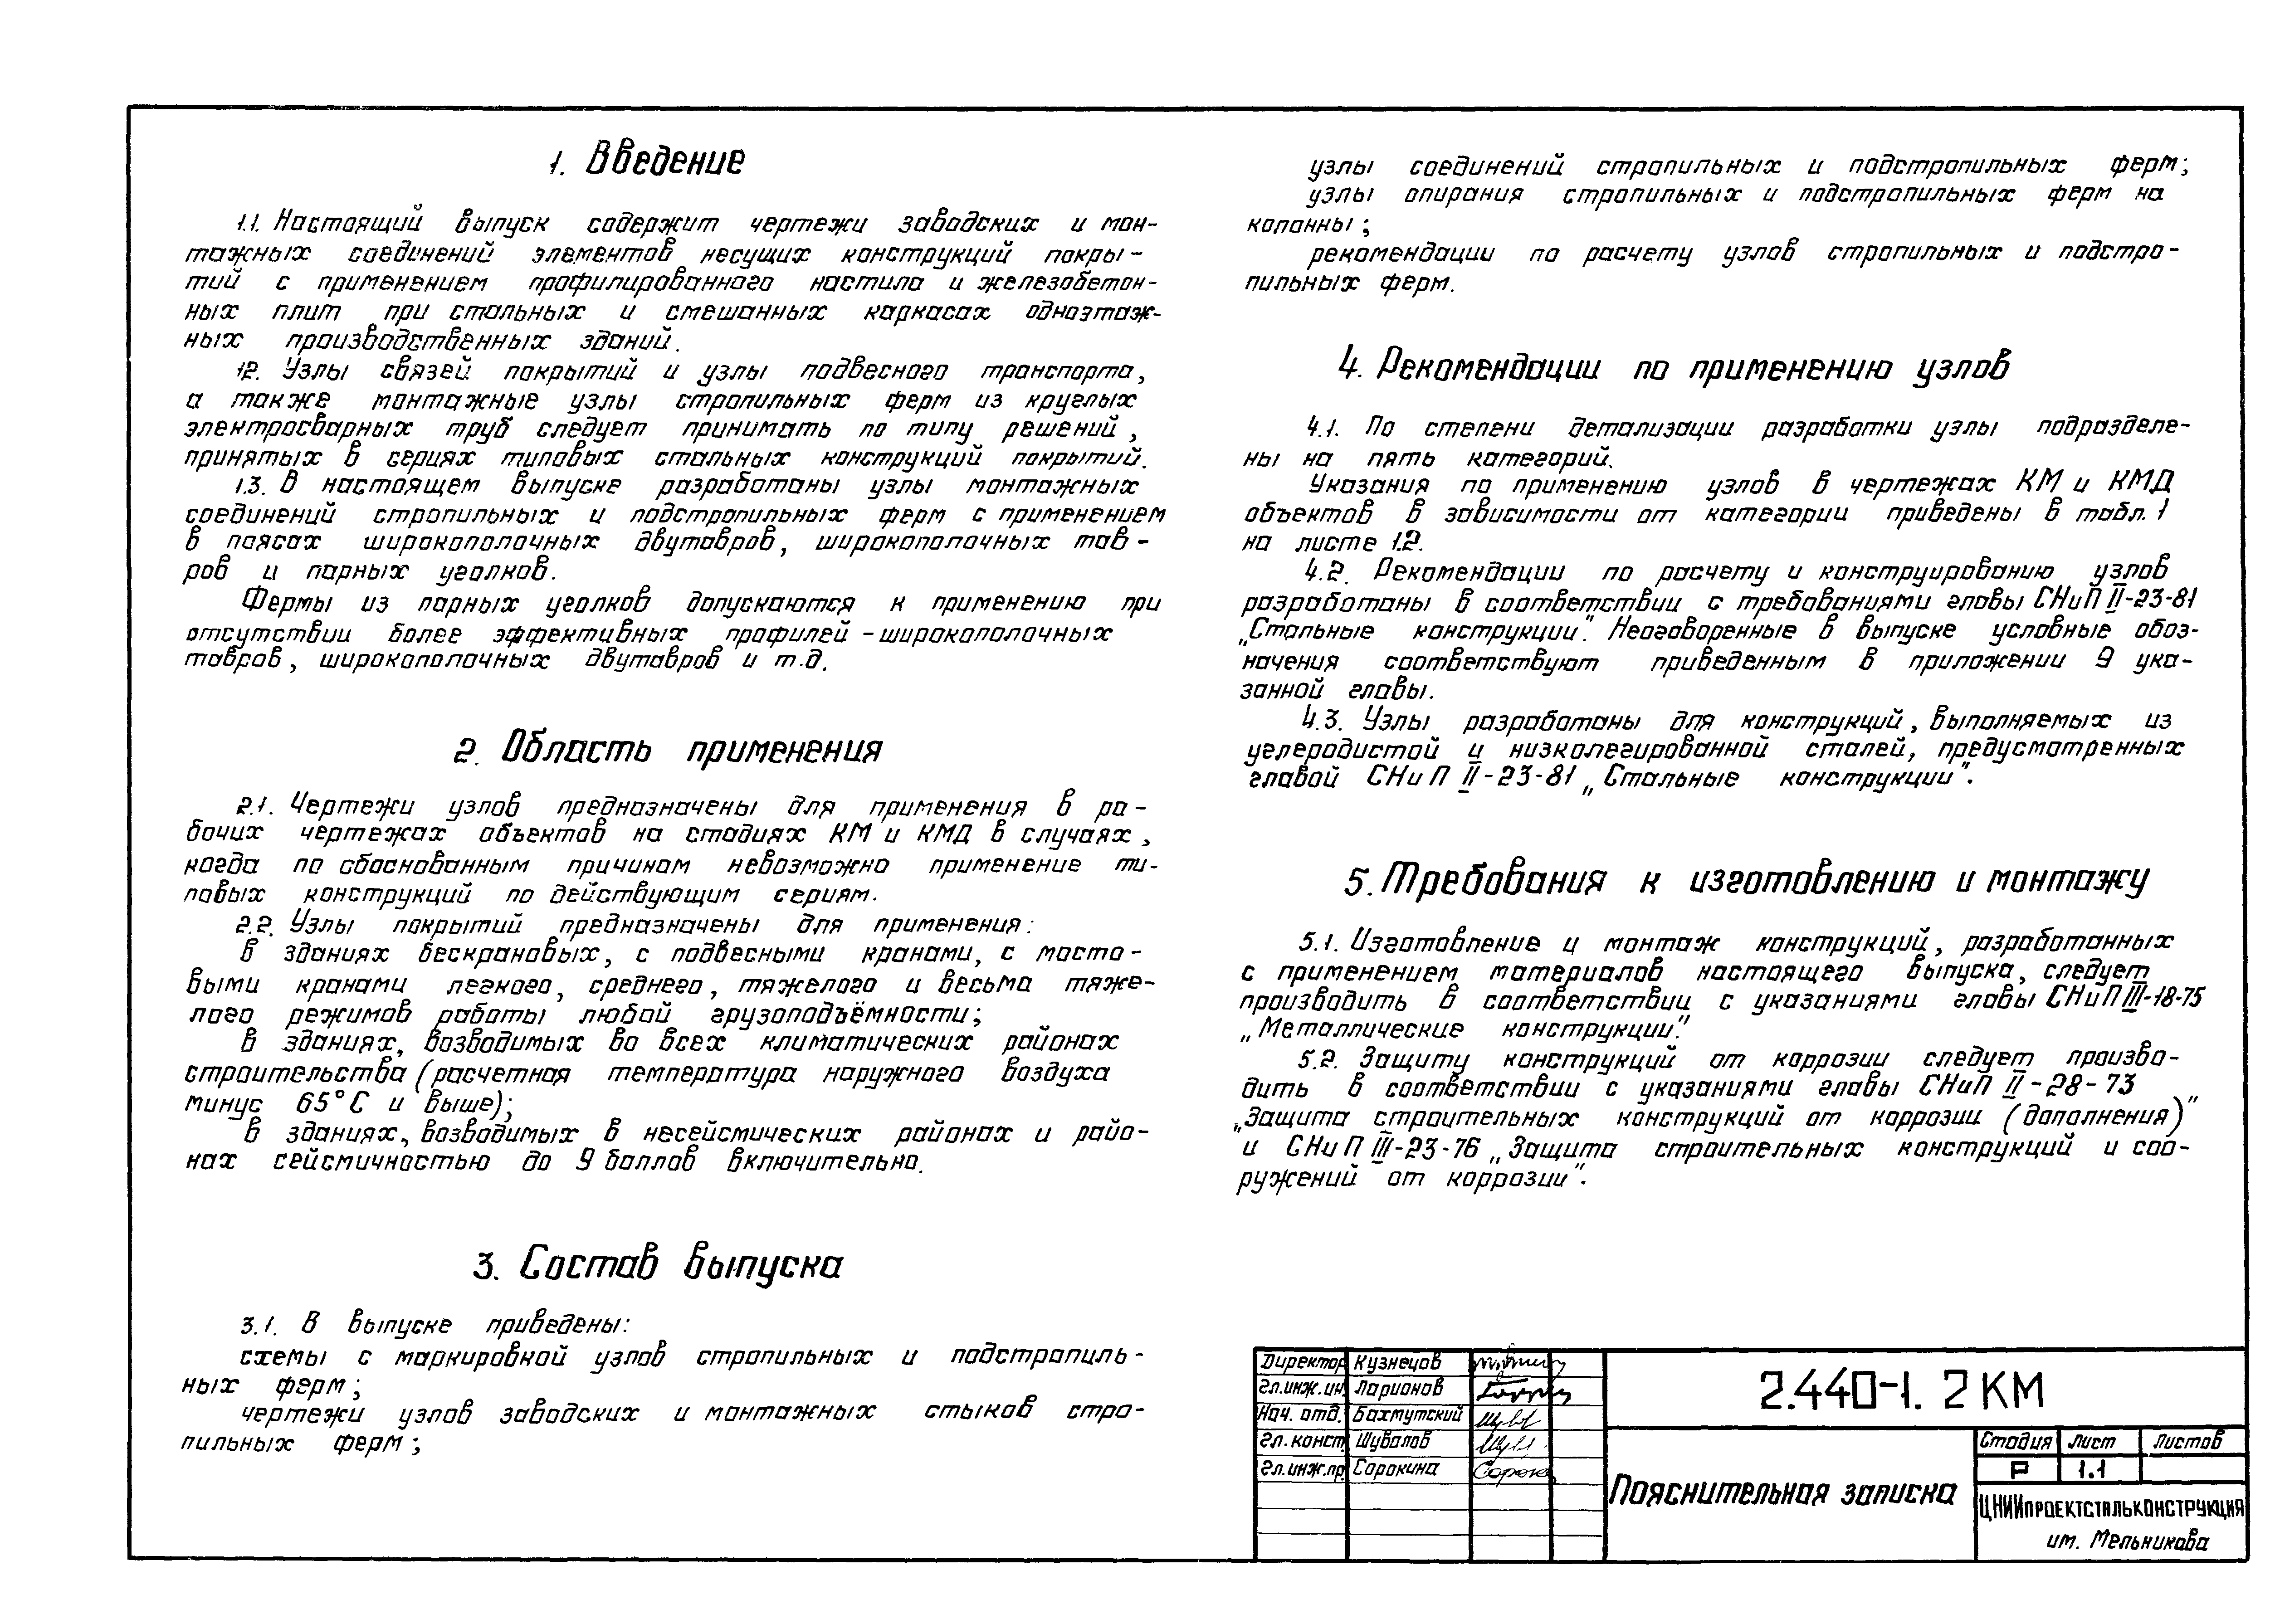 1. Введение
1.1. Настоящий выпуск содержит чертежи заводских и мон-
тажных соединений элементов несущих конструкций покры-
тий с применением профилированного настила и железобетон-
ных плит при стальных и смешанных каркасах одноэтаж-
ных производственных зданий.
12. Узлы связей покрытий и узлы подвесного транспорта,
а также монтажные узлы стропильных ферм из круглых
электросварных труб следует принимать по типу решений,
принятых в сериях типовых стальных конструкций покрытий.
1.3. В настоящем выпуске разработаны узлы монтажных
соединений стропильных и подстропильных ферм с применением
в поясах широкополочных двутавров, широкополочных тав-
ров и парных уголков.
Фермы из парных уголков допускаются к применению при
отсутствии более эффективных профилей - широкополочных
тавров, широкополочных двутавров и т.д.
2. Область применения
2.1. Чертежи узлов предназначены для применения в ра-
бочих чертежах объектов на стадиях КМ и КМД в случаях,
когда по обоснованным причинам невозможно применение ти-
повых конструкций по действующим сериям.
2.2. Узлы покрытий предназначены для применения:
в зданиях бескрановых, с подвесными кранами, с мосто-
выми кранами легкого, среднего, тяжелого и весьма тяже-
лого режимов работы любой грузоподъёмности;
в зданиях, возводимых во всех климатических районах
строительства (расчетная температура наружного воздуха
минус 65°С и выше);
в зданиях, возводимых в несейсмических районах и райо-
нах сейсмичностью до 9 баллов включительно.
3. Состав выпуска
3.1. В выпуске приведены:
схемы с маркировкой узлов стропильных и подстропиль-
ных ферм;
чертежи узлов заводских и монтажных стыков стро-
пильных ферм;
узлы соединений стропильных и подстропильных ферм;
узлы опирания стропильных и подстропильных ферм на
колонны;
рекомендации по расчету узлов стропильных и подстро-
пильных ферм.
4. Рекомендации по применению узлов
4.1. По степени детализации разработки узлы подразделе-
ны на пять категорий.
Указания по применению узлов в чертежах КМ и КМД
объектов в зависимости от категории приведены в табл. 1
на листе 1.2.
4.2. Рекомендации по расчету и конструированию узлов
разработаны в соответствии с требованиями главы СНиП II-23-81
„Стальные конструкции". Неоговоренные в выпуске условные обоз-
начения соответствуют приведенным в приложении 9 ука-
занной главы.
4.3. Узлы разработаны для конструкций, выполняемых из
углеродистой и низколегированной сталей, предусмотренных
главой СНиП II-23-81 „Стальные конструкции".
5. Требования к изготовлению и монтажу
5.1. Изготовление и монтаж конструкций, разработанных
с применением материалов настоящего выпуска, следует
производить в соответствии с указаниями главы СНиП III-18-75
„Металлические конструкции".
5.2. Защиту конструкций от коррозии следует произво-
дить в соответствии с указаниями главы СНиП II-28-73
„Защита строительных конструкций от коррозии (дополнения)"
и СНиП III-23-76 „Защита строительных конструкций и соо-
ружений от коррозии".
Директор Кузнецов
Гл.инж.ин. Ларионов
Нач. отд. Бахмутский
Гл. конст. Шувалов
Гл.инж.пр. Сорокина
2.440-1. 2 КМ
Пояснительная записка
Стадия Лист Листов
Р 1.1
ЦНИИПРОЕКТСТАЛЬКОНСТРУКЦИЯ
им. Мельникова